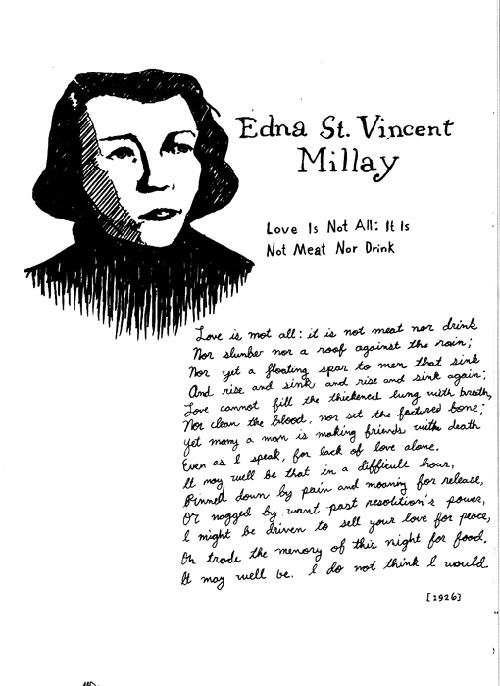 Edna St. Vincent
Millay
Love Is Not All: It Is
Not Meat Nor Drink
Love is not all: it is not meat nor drink
Nor slumber nor a roof against the rain;
Nor yet a floating spar to men that sink
And rise and sink and rise and sink again;
Love cannot fill the thickened lung with breath,
Nor clean the blood, nor set the factured bone;
Yet many a man is making friends with death
Even as I speak, for lack of love alone.
It may well be that in a difficult hour,
Pinned down by pain and moaning for release,
Or nagged by want past resolition's power,
I might be driven to sell your love for peace,
Or trade the memory of this night for food.
It may well be. I do not think I would.
[1926]